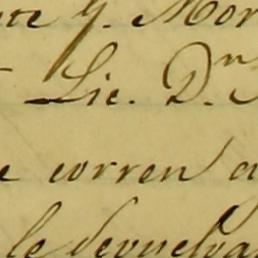 y. Mor
Lic. D.n
corren
le devuelva